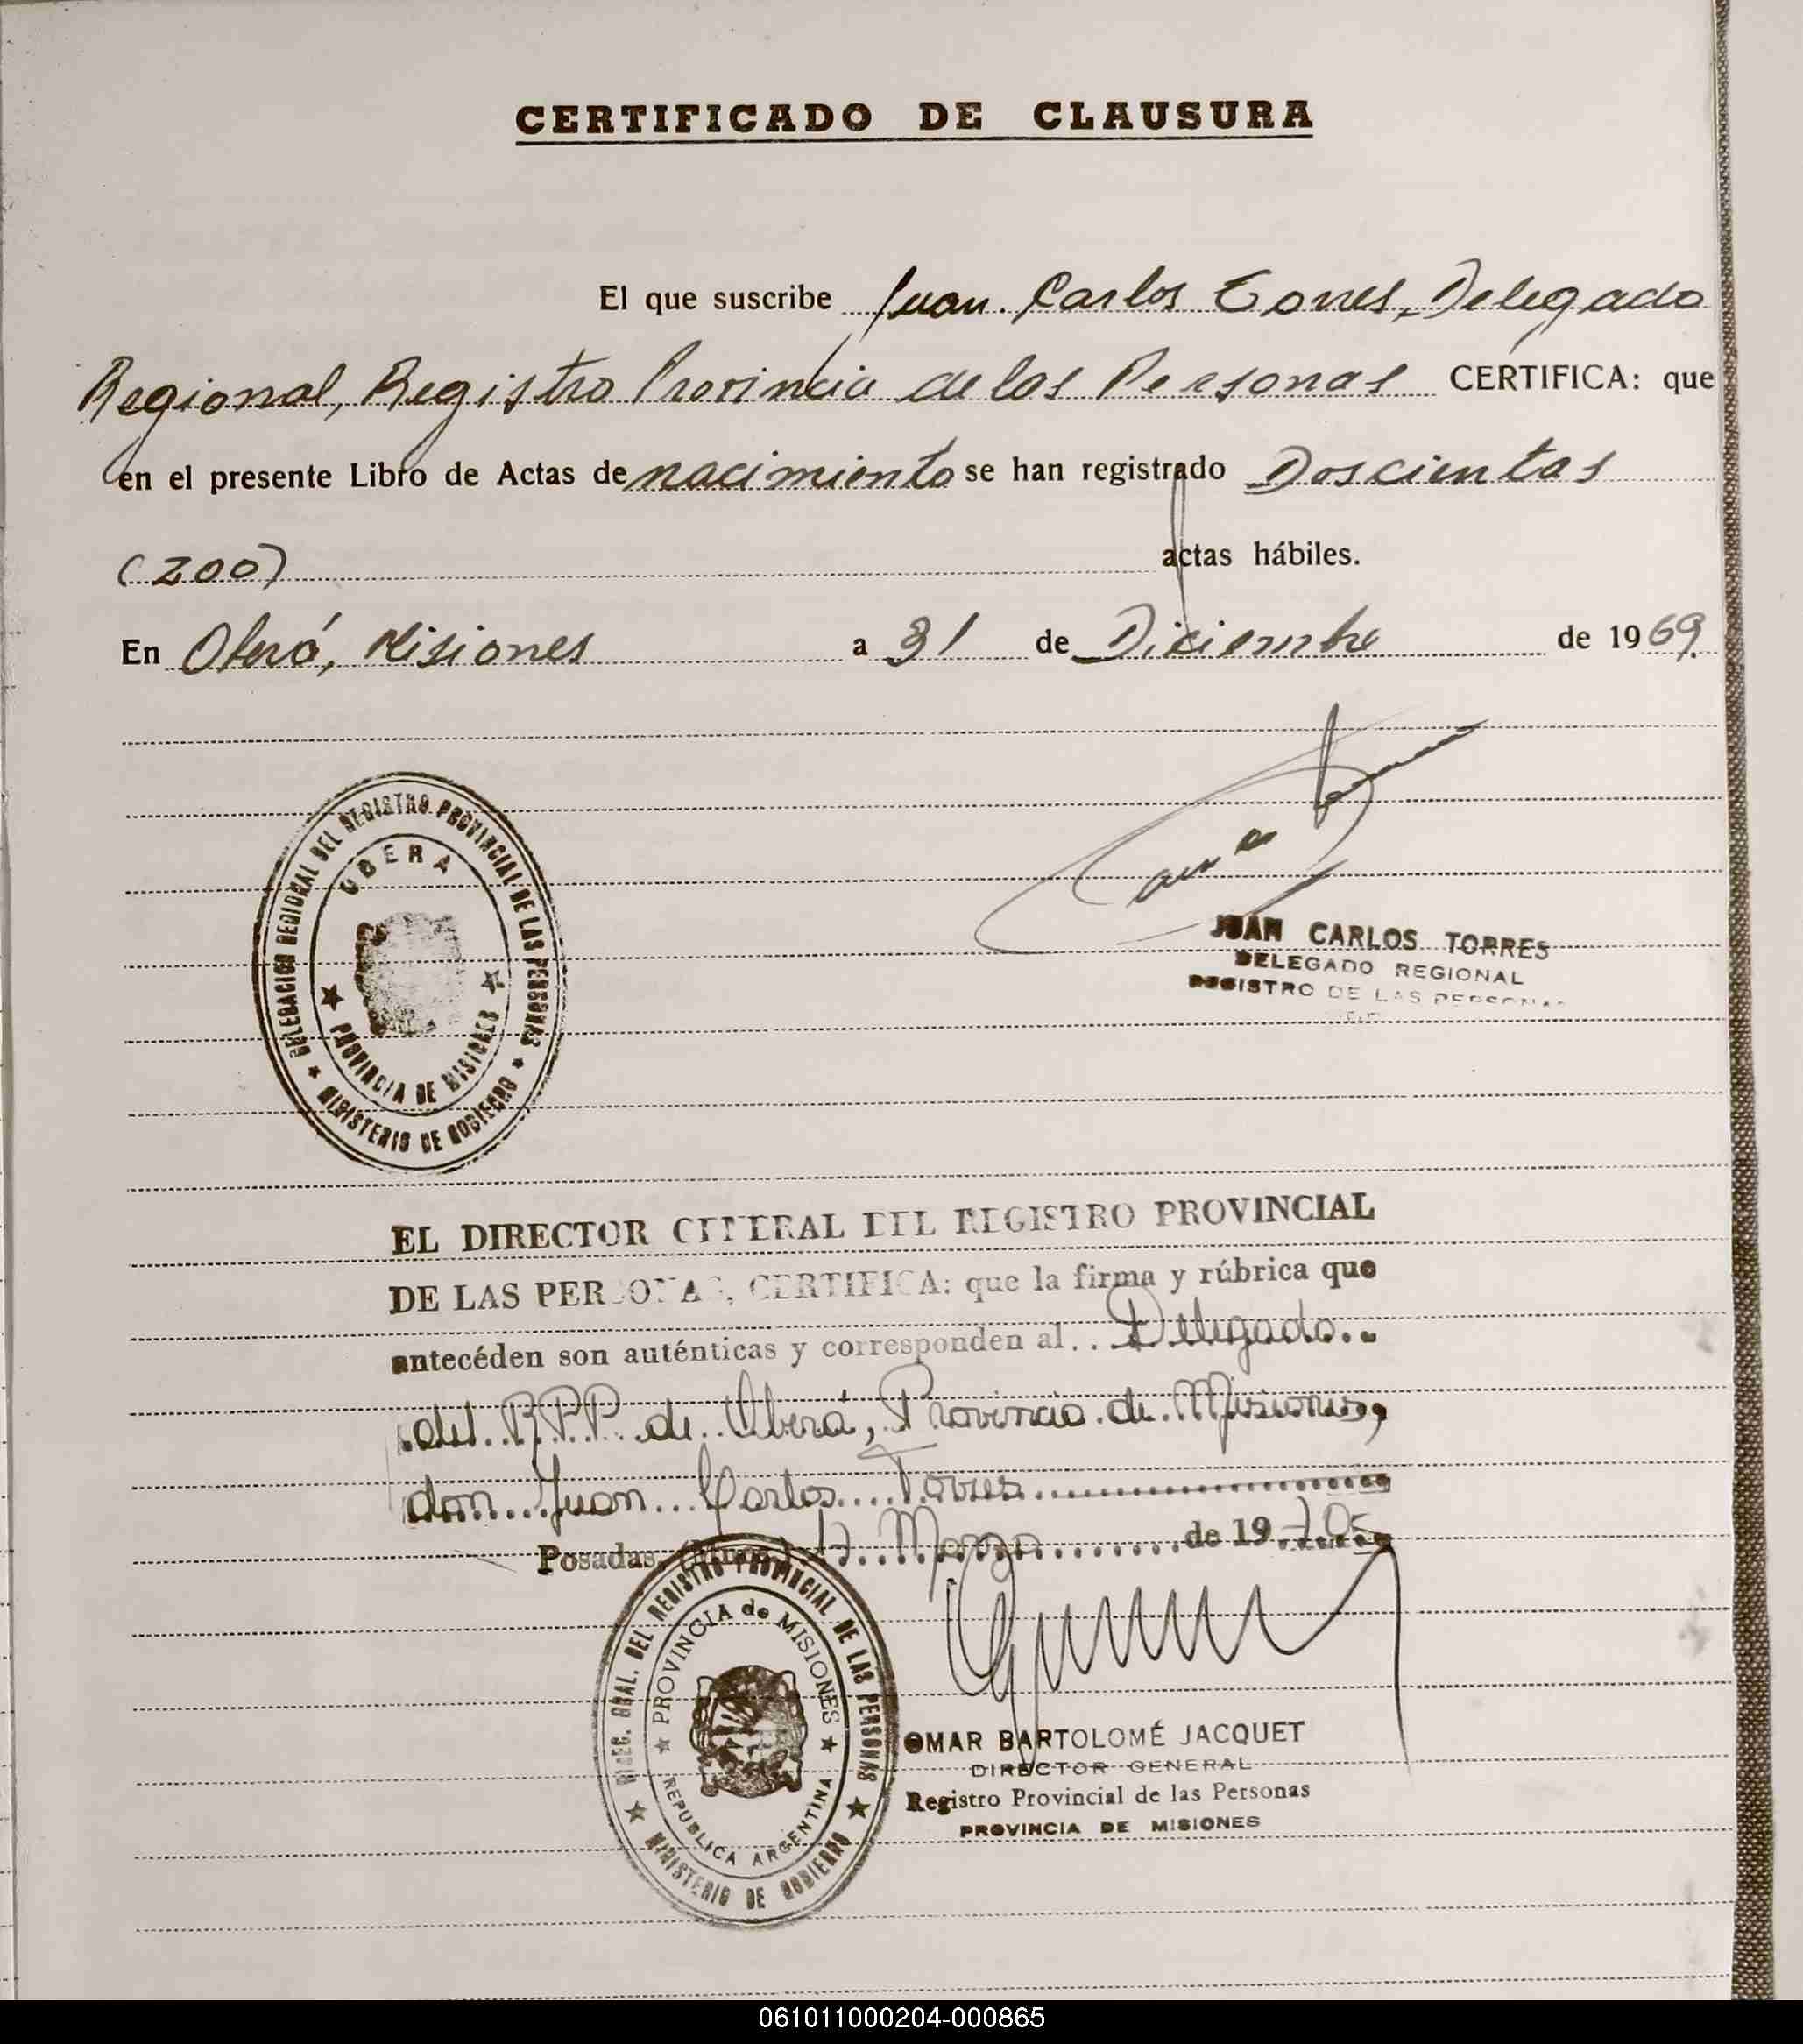 CERTIFICADO DE CLAUSURA
El que suscribe Juan Carlos Torres, Delegado
Regional, Registro Provincia de las Personas CERTIFICA: que
en el presente Libro de Actas de nacimiento se han registrado Doscientas
(200) actas hábiles.
En Oberá, Misiones a 31 de Diciembre de 1969.
DELEGACION REGIONAL DEL REGISTRO PROVINCIAL DE LAS PERSONAS
OBERA
PROVINCIA DE MISIONES
MINISTERIO DE GOBIERNO
JUAN CARLOS TORRES
DELEGADO REGIONAL
REGISTRO DE LAS PERSONAS
EL DIRECTOR GENERAL DEL REGISTRO PROVINCIAL
DE LAS PERSONAS, CERTIFICA: que la firma y rúbrica que
antecéden son auténticas y corresponden al Delegado
del R.P.P. de Oberá, Provincia de Misiones,
don Juan Carlos Torres
Posadas, (Mnes.) Marzo de 19
DIREC. GRAL. DEL REGISTRO PROVINCIAL DE LAS PERSONAS
PROVINCIA de MISIONES
REPUBLICA ARGENTINA
MINISTERIO DE GOBIERNO
OMAR BARTOLOMÉ JACQUET
DIRECTOR GENERAL
Registro Provincial de las Personas
PROVINCIA DE MISIONES
061011000204-000865